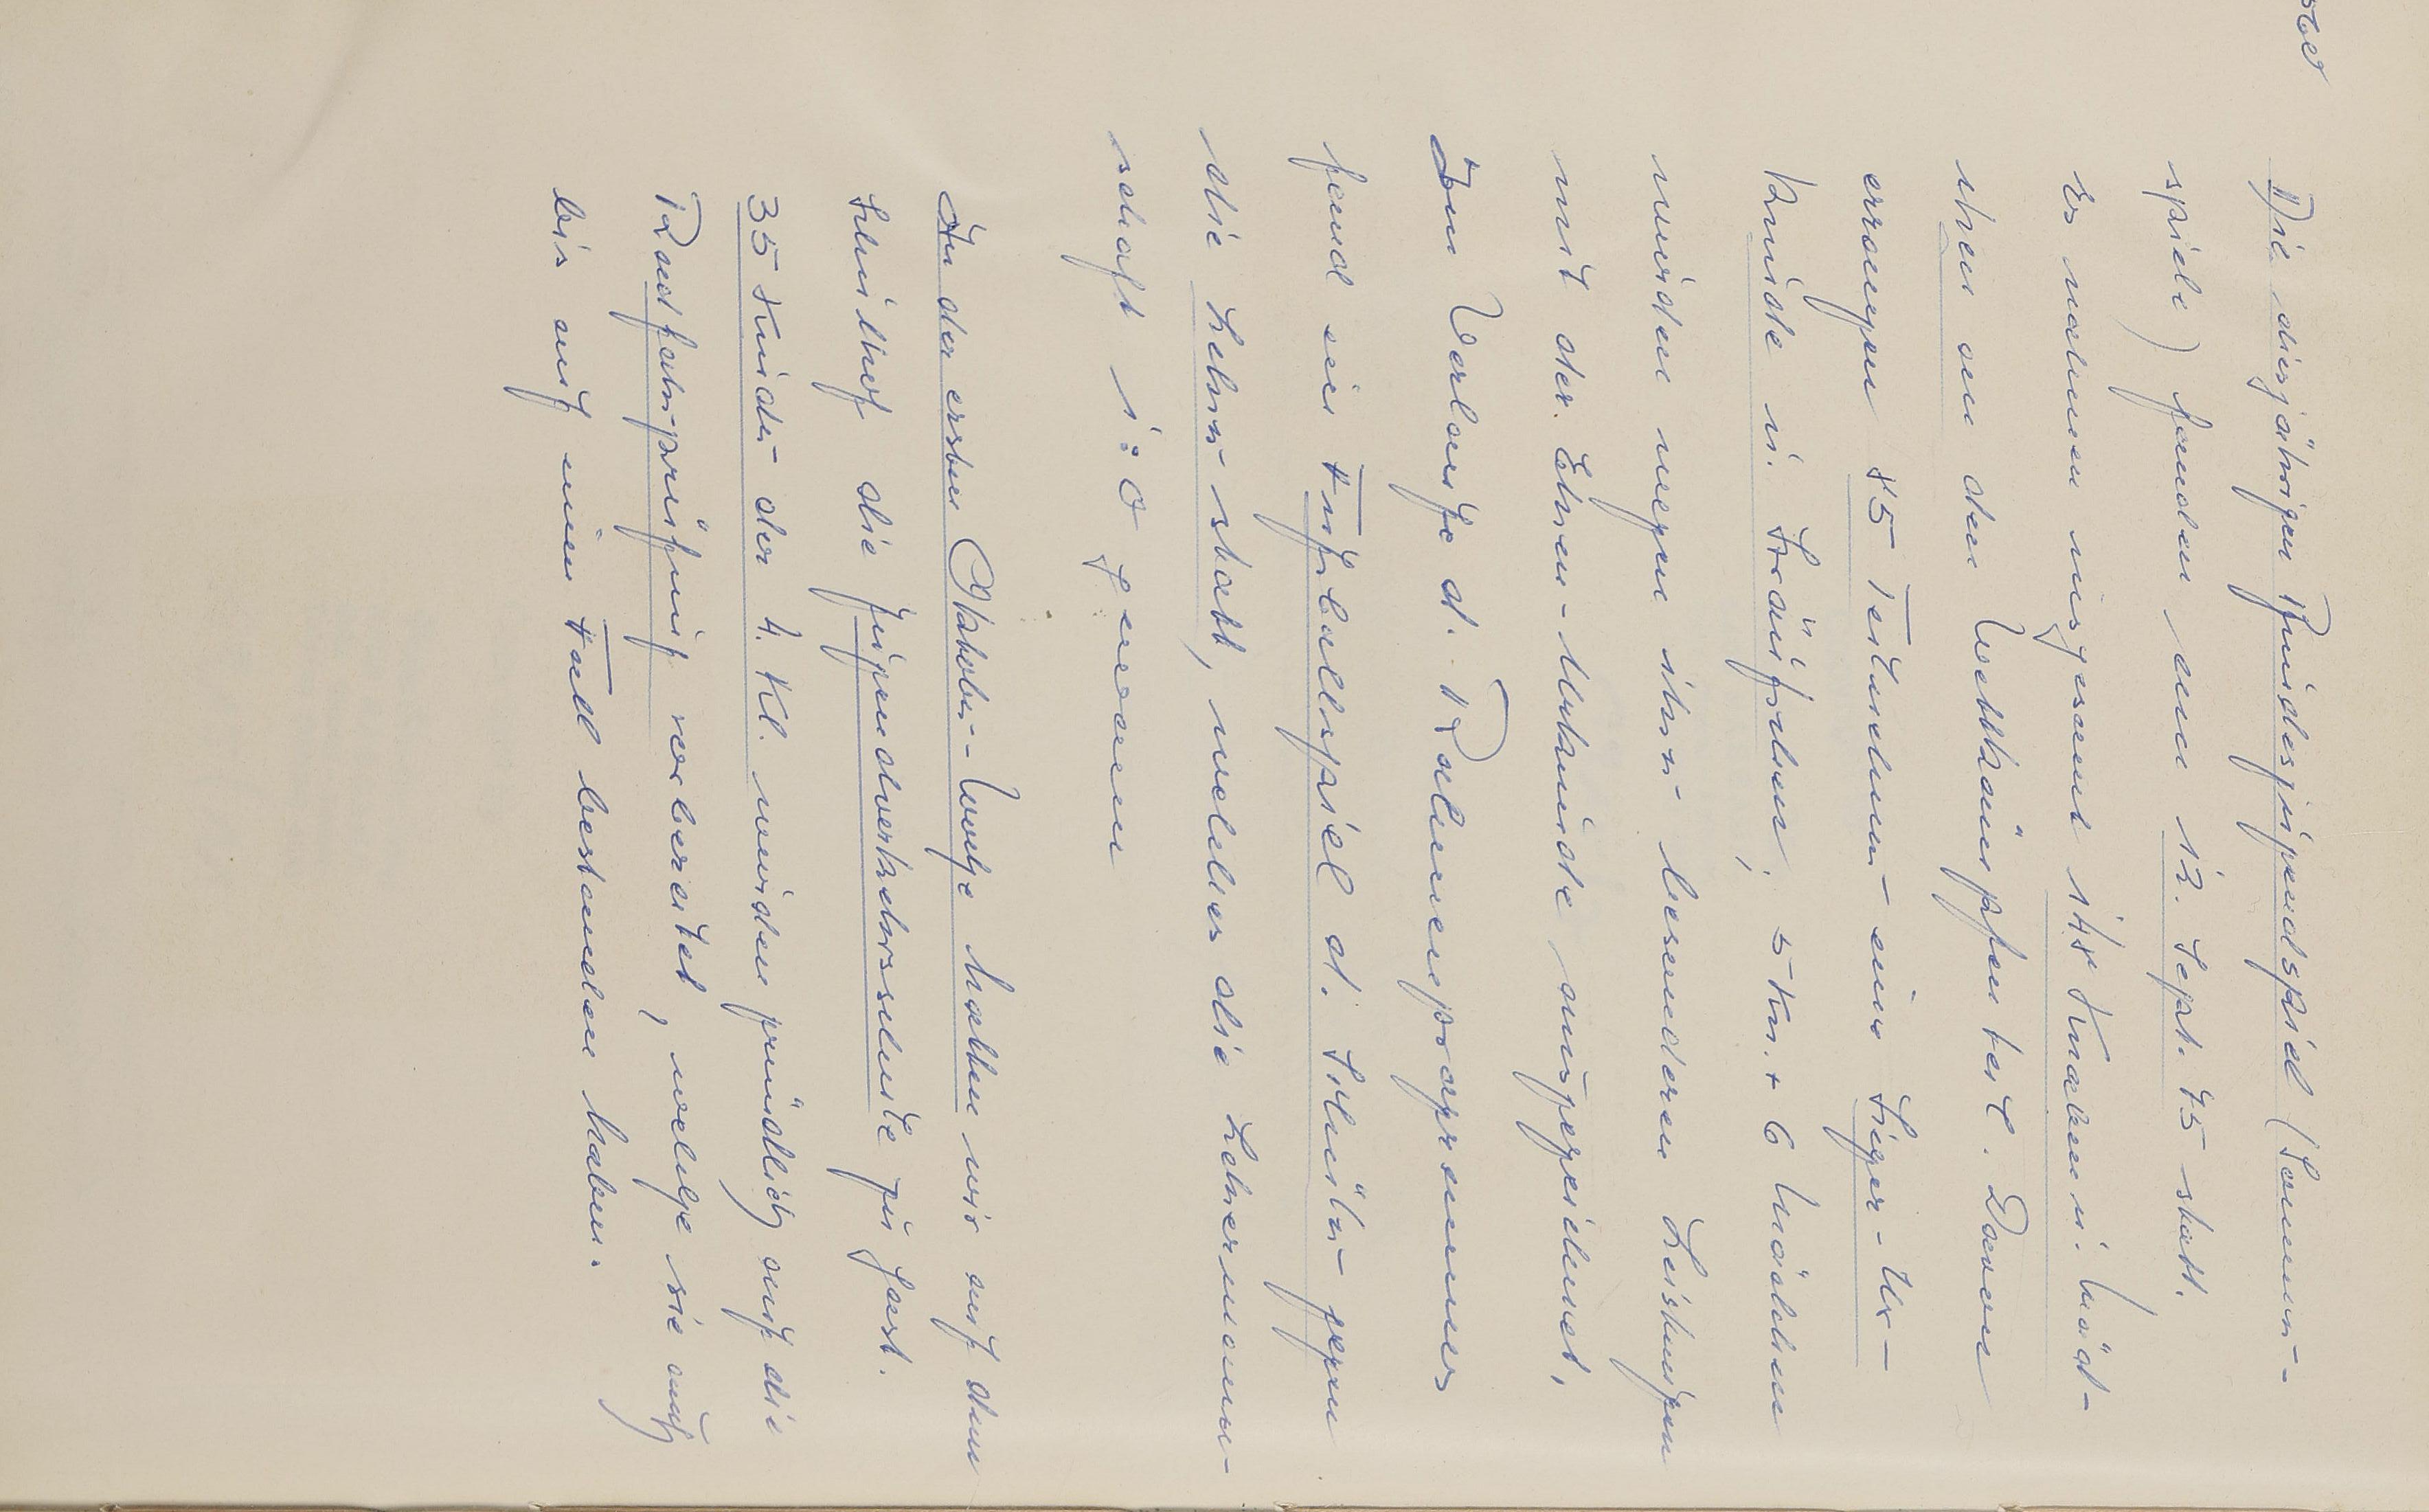 Die diesjährigen Bundesjugendspiel (Sommer-
spiele) fanden am 12. Sept. 75 statt.
Es nahmen insgesamt 148 Knaben u. Mäd-
chen an den Wettkämpfen teil. Davon
errangen 85 Teilnehmer eine Sieger-Ur-
kunde u. Sträußchen; 5 Kn. + 6 Mädchen
wurden wegen ihrer besonderen Leistungen
mit der Ehren-Urkunde ausgezeichnet.
Im Verlaufe d. Rahmenprogrammes
fand ein Fußballspiel d. Schüler gegen
die Lehrer statt, welches die Lehrermann-
schaft 1:0 gewann
In der ersten Oktober-Woche hatten wir auf dem
Schulhof die Jugendverkehrsschule zu Gast.
35 Kinder der 4. Kl. wurden gründlich auf die
Radfahrprüfung vorbereitet, welche sie auch
bis auf einen Fall bestanden haben.